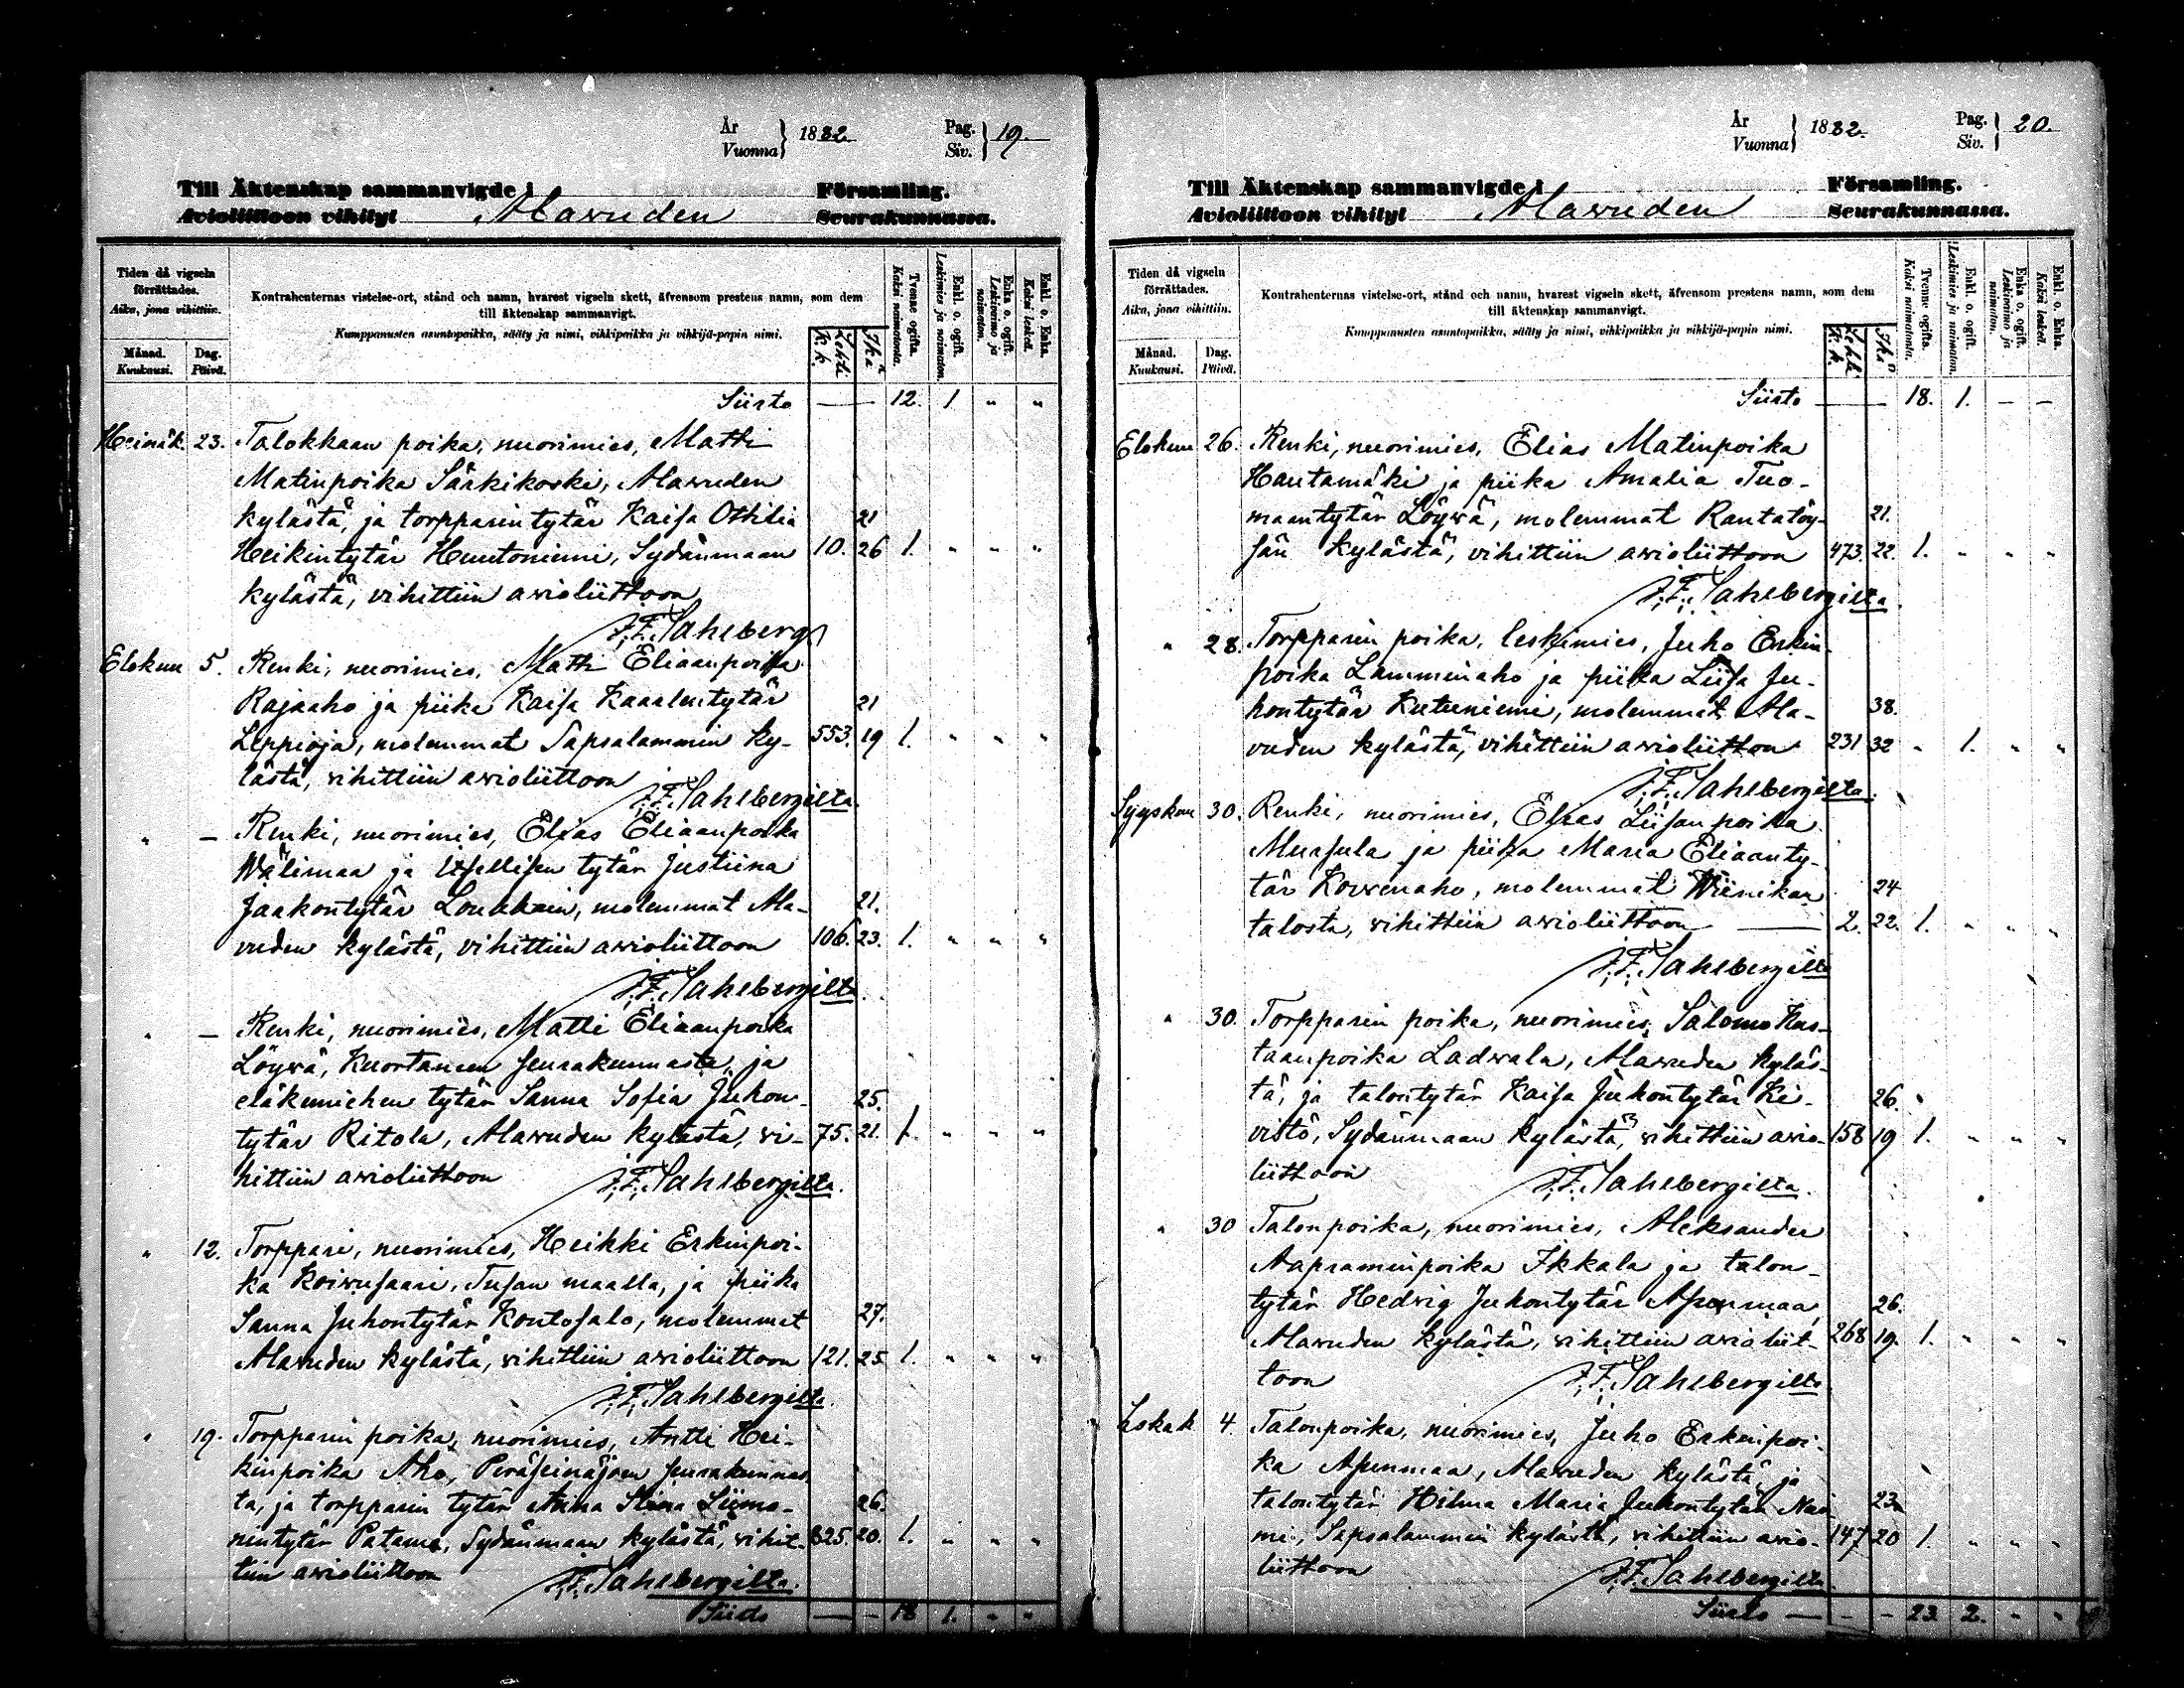 År
Vuonna } 1882.
Pag.
Siv. } 19.
Till Äktenskap sammanvigde i Församling.
Avioliittoon vihityt Alavuden Seurakunnassa.
Tiden då vigseln förrättades.
Aika, jona vihittiin.
Månad. Kuukausi.
Dag. Päivä.
Kontrahenternas vistelse-ort, stånd och namn, hvarest vigseln skett, äfvensom prestens namn, som dem
till äktenskap sammanvigt.
Kumppanusten asuntopaikka, sääty ja nimi, vihkipaikka ja vihkijä-papin nimi.
Lehti K. k.
Ikä
Tvenne ogifta. Kaksi naimatonta.
Enkl. o. ogift. Leskimies ja naimaton.
Enka o. ogift. Leskivaimo ja naimaton.
Enkl. o. Enka. Kaksi leskeä.
Siirto — 12. 1 " "
Heinäk. 23. Talokkaan poika, nuorimies, Matti
Matinpoika Särkikoski, Alavuden
kylästä, ja torpparin tytär Kaisa Othilia 21
Heikintytär Huutoniemi, Sydänmaan 10. 26 1. " " "
kylästä, vihittiin avioliittoon
J. F. Sahlberg
Elokuu 5. Renki, nuorimies, Matti Eliaanpoika
Rajaaho ja piika Kaisa Kaalentytär 21
Leppioja, molemmat Sapsalammin ky- 553. 19 1. " " "
lästä, vihittiin avioliittoon
J. F. Sahlbergilta.
" — Renki, nuorimies, Elias Eliaanpoika
Wälimaa ja Itsellisen tytär Justiina
Jaakontytär Loukkain, molemmat Ala- 21.
vuden kylästä, vihittiin avioliittoon 106. 23. 1. " " "
J. F. Sahlbergilta.
" — Renki, nuorimies, Matti Eliaanpoika
Löywä, Kuortaneen seurakunnasta, ja
eläkemiehen tytär Sanna Sofia Juhon- 25.
tytär Ritola, Alavuden kylästä, vi- 75. 21. 1. " " "
hittiin avioliittoon J. F. Sahlbergilta.
" 12. Torppari, nuorimies, Heikki Erkinpoi-
ka Koivusaari, Tusan maalla, ja piika
Sanna Juhontytär Kontosalo, molemmat 27.
Alavuden kylästä, vihittiin avioliittoon 121. 25 1. " " "
J. F. Sahlbergilta.
" 19. Torpparin poika, nuorimies, Antti Hei-
kinpoika Aho, Peräseinäjoen seurakunnas
ta, ja torpparin tytär Anna Stina Siimo- 26.
nintytär Patama, Sydänmaan kylästä, vihit- 825. 20. 1. " " "
tiin avioliittoon J. F. Sahlbergilta.
Siirto — — 18 1. " "
År
Vuonna } 1882.
Pag.
Siv. } 20.
Till Äktenskap sammanvigde i Församling.
Avioliittoon vihityt Alavuden Seurakunnassa.
Tiden då vigseln förrättades.
Aika, jona vihittiin.
Månad. Kuukausi.
Dag. Päivä.
Kontrahenternas vistelse-ort, stånd och namn, hvarest vigseln skett, äfvensom prestens namn, som dem
till äktenskap sammanvigt.
Kumppanusten asuntopaikka, sääty ja nimi, vihkipaikka ja vihkijä-papin nimi.
Lehti K. k.
Ikä
Tvenne ogifta. Kaksi naimatonta.
Enkl. o. ogift. Leskimies ja naimaton.
Enka o. ogift. Leskivaimo ja naimaton.
Enkl. o. Enka. Kaksi leskeä.
Siirto — 18. 1. — —
Elokuu 26. Renki, nuorimies, Elias Matinpoika
Hautamäki ja piika Amalia Tuo-
maantytär Löywä, molemmat Rantatöy- 21.
sän kylästä, vihittiin avioliittoon 473. 22. 1. " " "
J. F. Sahlbergilta.
" 28. Torpparin poika, leskimies, Juho Erkin-
poika Lamminaho ja piika Liisa Ju-
hontytär Kutuniemi, molemmat Ala- 38.
vuden kylästä, vihittiin avioliittoon 231 32 " 1. " "
J. F. Sahlbergilta.
Syyskuu 30. Renki, nuorimies, Elias Liisanpoika
Mursula ja piika Maria Eliaanty-
tär Kovvenaho, molemmat Wiinikan 24
talosta, vihittiin avioliittoon — 2. 22. 1. " " "
J. F. Sahlbergilta
" 30. Torpparin poika, nuorimies, Salomo Kus-
taanpoika Ladvala, Alavuden kyläs-
tä, ja talontytär Kaisa Juhontytär Ki- 26.
vistö, Sydänmaan kylästä, vihittiin avio- 158 19 1. " " "
liittoon J. F. Sahlbergilta.
" 30 Talonpoika, nuorimies, Aleksander
Aapraminpoika Ikkala ja talon-
tytär Hedvig Juhontytär Asunmaa, 26.
Alavuden kylästä, vihittiin avioliit- 268 19. 1. " " "
toon J. F. Sahlbergilta
Lokak 4. Talonpoika, nuorimies, Juho Erkinpoi-
ka Asunmaa, Alavuden kylästä ja
talontytär Hilma Maria Juhontytär Nie 23
mi, Sapsalammin kylästä, vihittiin avio- 147 20 1. " " "
liittoon J. F. Sahlbergilta
Siirto — — — 23. 2. " "